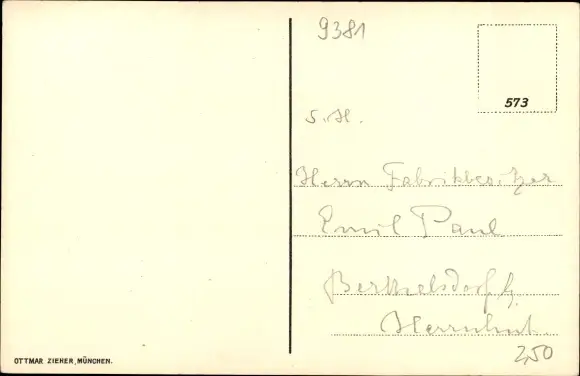 9381
573
S. H.
Herrn Fabrikbesitzer
Emil Paul
Berthelsdorf b.
Herrnhut.
2,50
OTTMAR ZIEHER, MÜNCHEN.